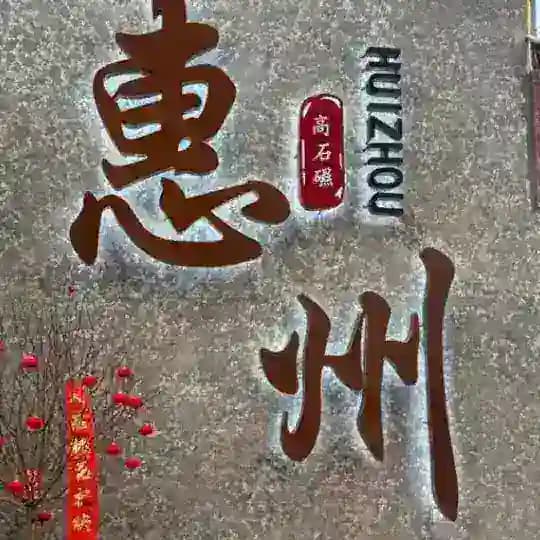 惠州
高石礁
HUIZHOU